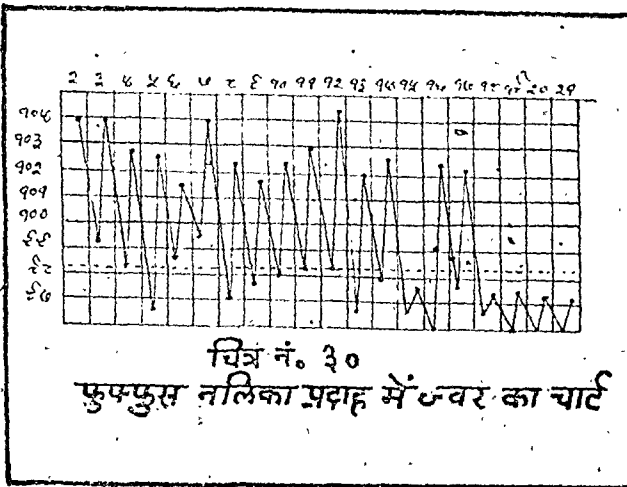 २ ३ ४ ५ ६ ७ ८ ९ १० ११ १२ १३ १४ १५ १६ १७ १८ १९ २० २१
१०४
१०३
१०२
१०१
१००
९९
९८
९७
चित्र नं० ३०
फुफ्फुस नलिका प्रदाह में ज्वर का चार्ट